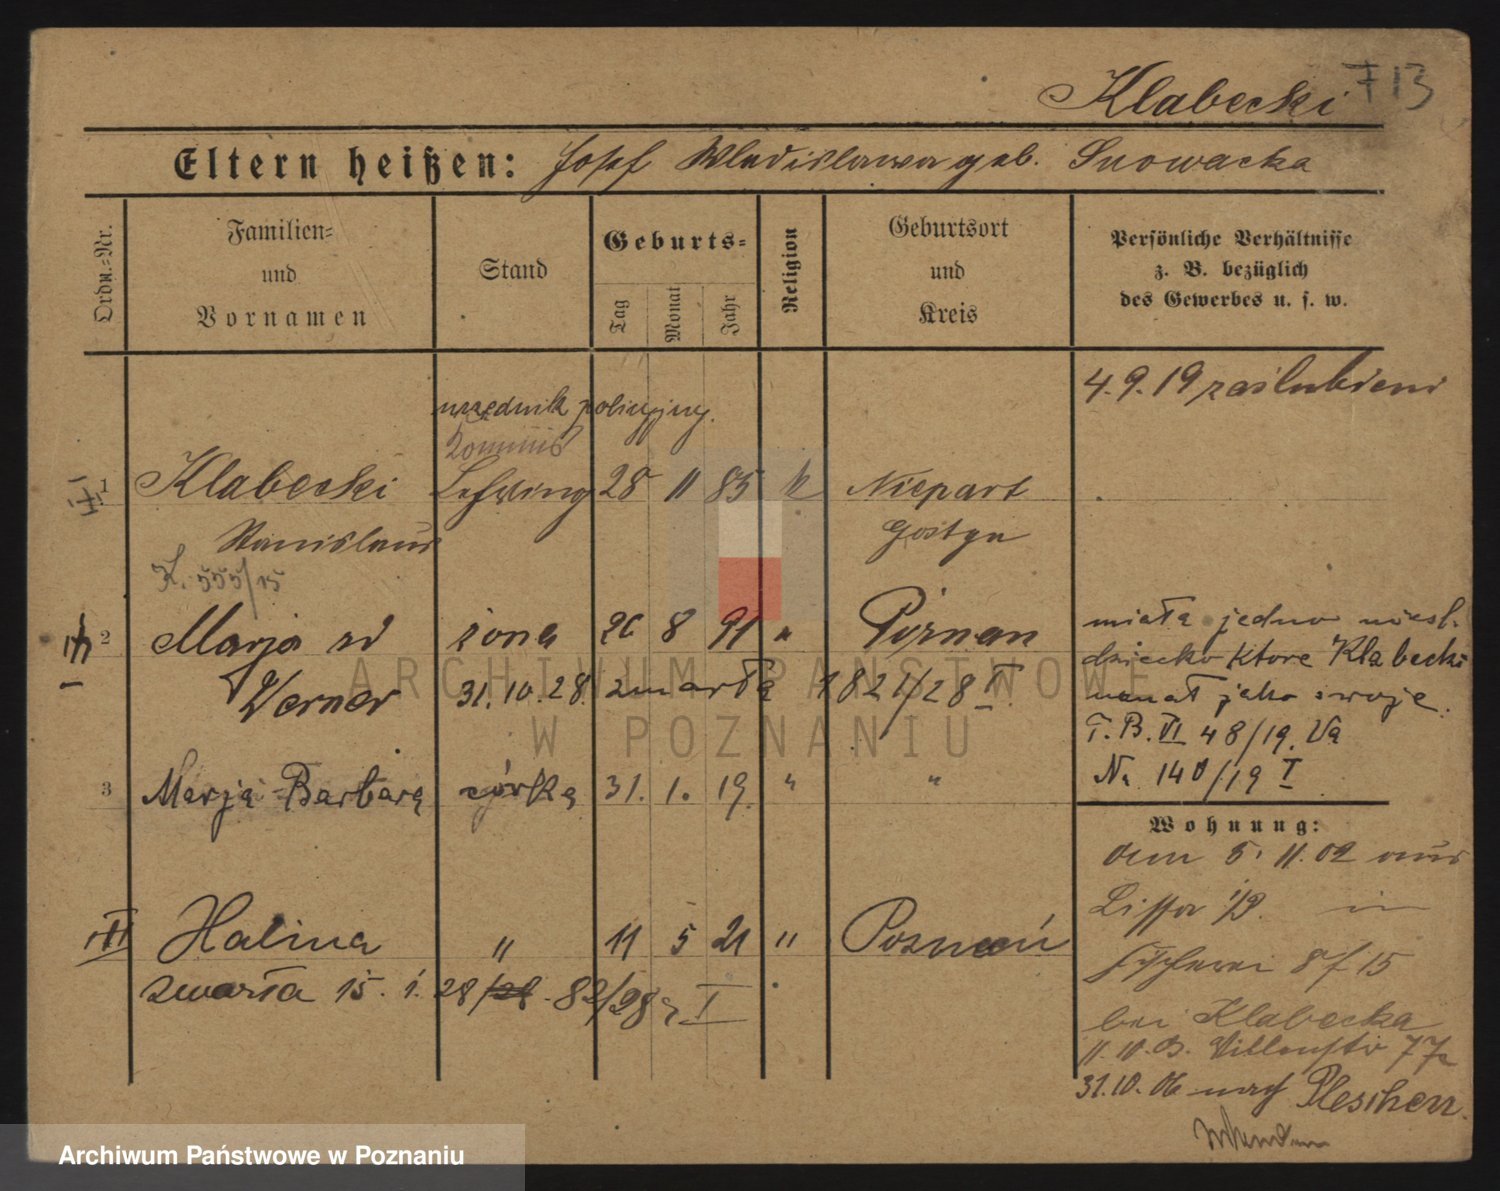 Klabecki 713
Eltern heißen: Josef Wladislawa geb. Snowacka
Ordn.-Nr.
Familien-
und
Vornamen
Stand
Geburts-
Tag
Monat
Jahr
Religion
Geburtsort
und
Kreis
Persönliche Verhältnisse
z. B. bezüglich
des Gewerbes u. s. w.
4.9.19 zaślubieni
urzędnik policyjny.
Kommis
1 Klabecki Lehrling 28 11 85 k Niepart
Stanislaus Gostyn
K. 555/15
2 Marja żona 26 8 91 " Poznan
Werner 31.10.28. zmarła 1821/28 II.
miała jedno nieśl.
dziecko ktore Klabecki
uznał jako swoje.
T.B. VI 48/19. Va
Na 140/19 I
3 Marja Barbara córka 31. 1. 19. " "
Halina " 11 5 21 " Poznań
zmarła 15. 1. 28/28 - 82/28 I
Wohnung:
am 5. 11. 02 aus
Lissa in
Fischerei 8/15
bei Klabecka
77a
31.10.06 nach Pleschen
ARCHIWUM PAŃSTWOWE
W POZNANIU
Archiwum Państwowe w Poznaniu